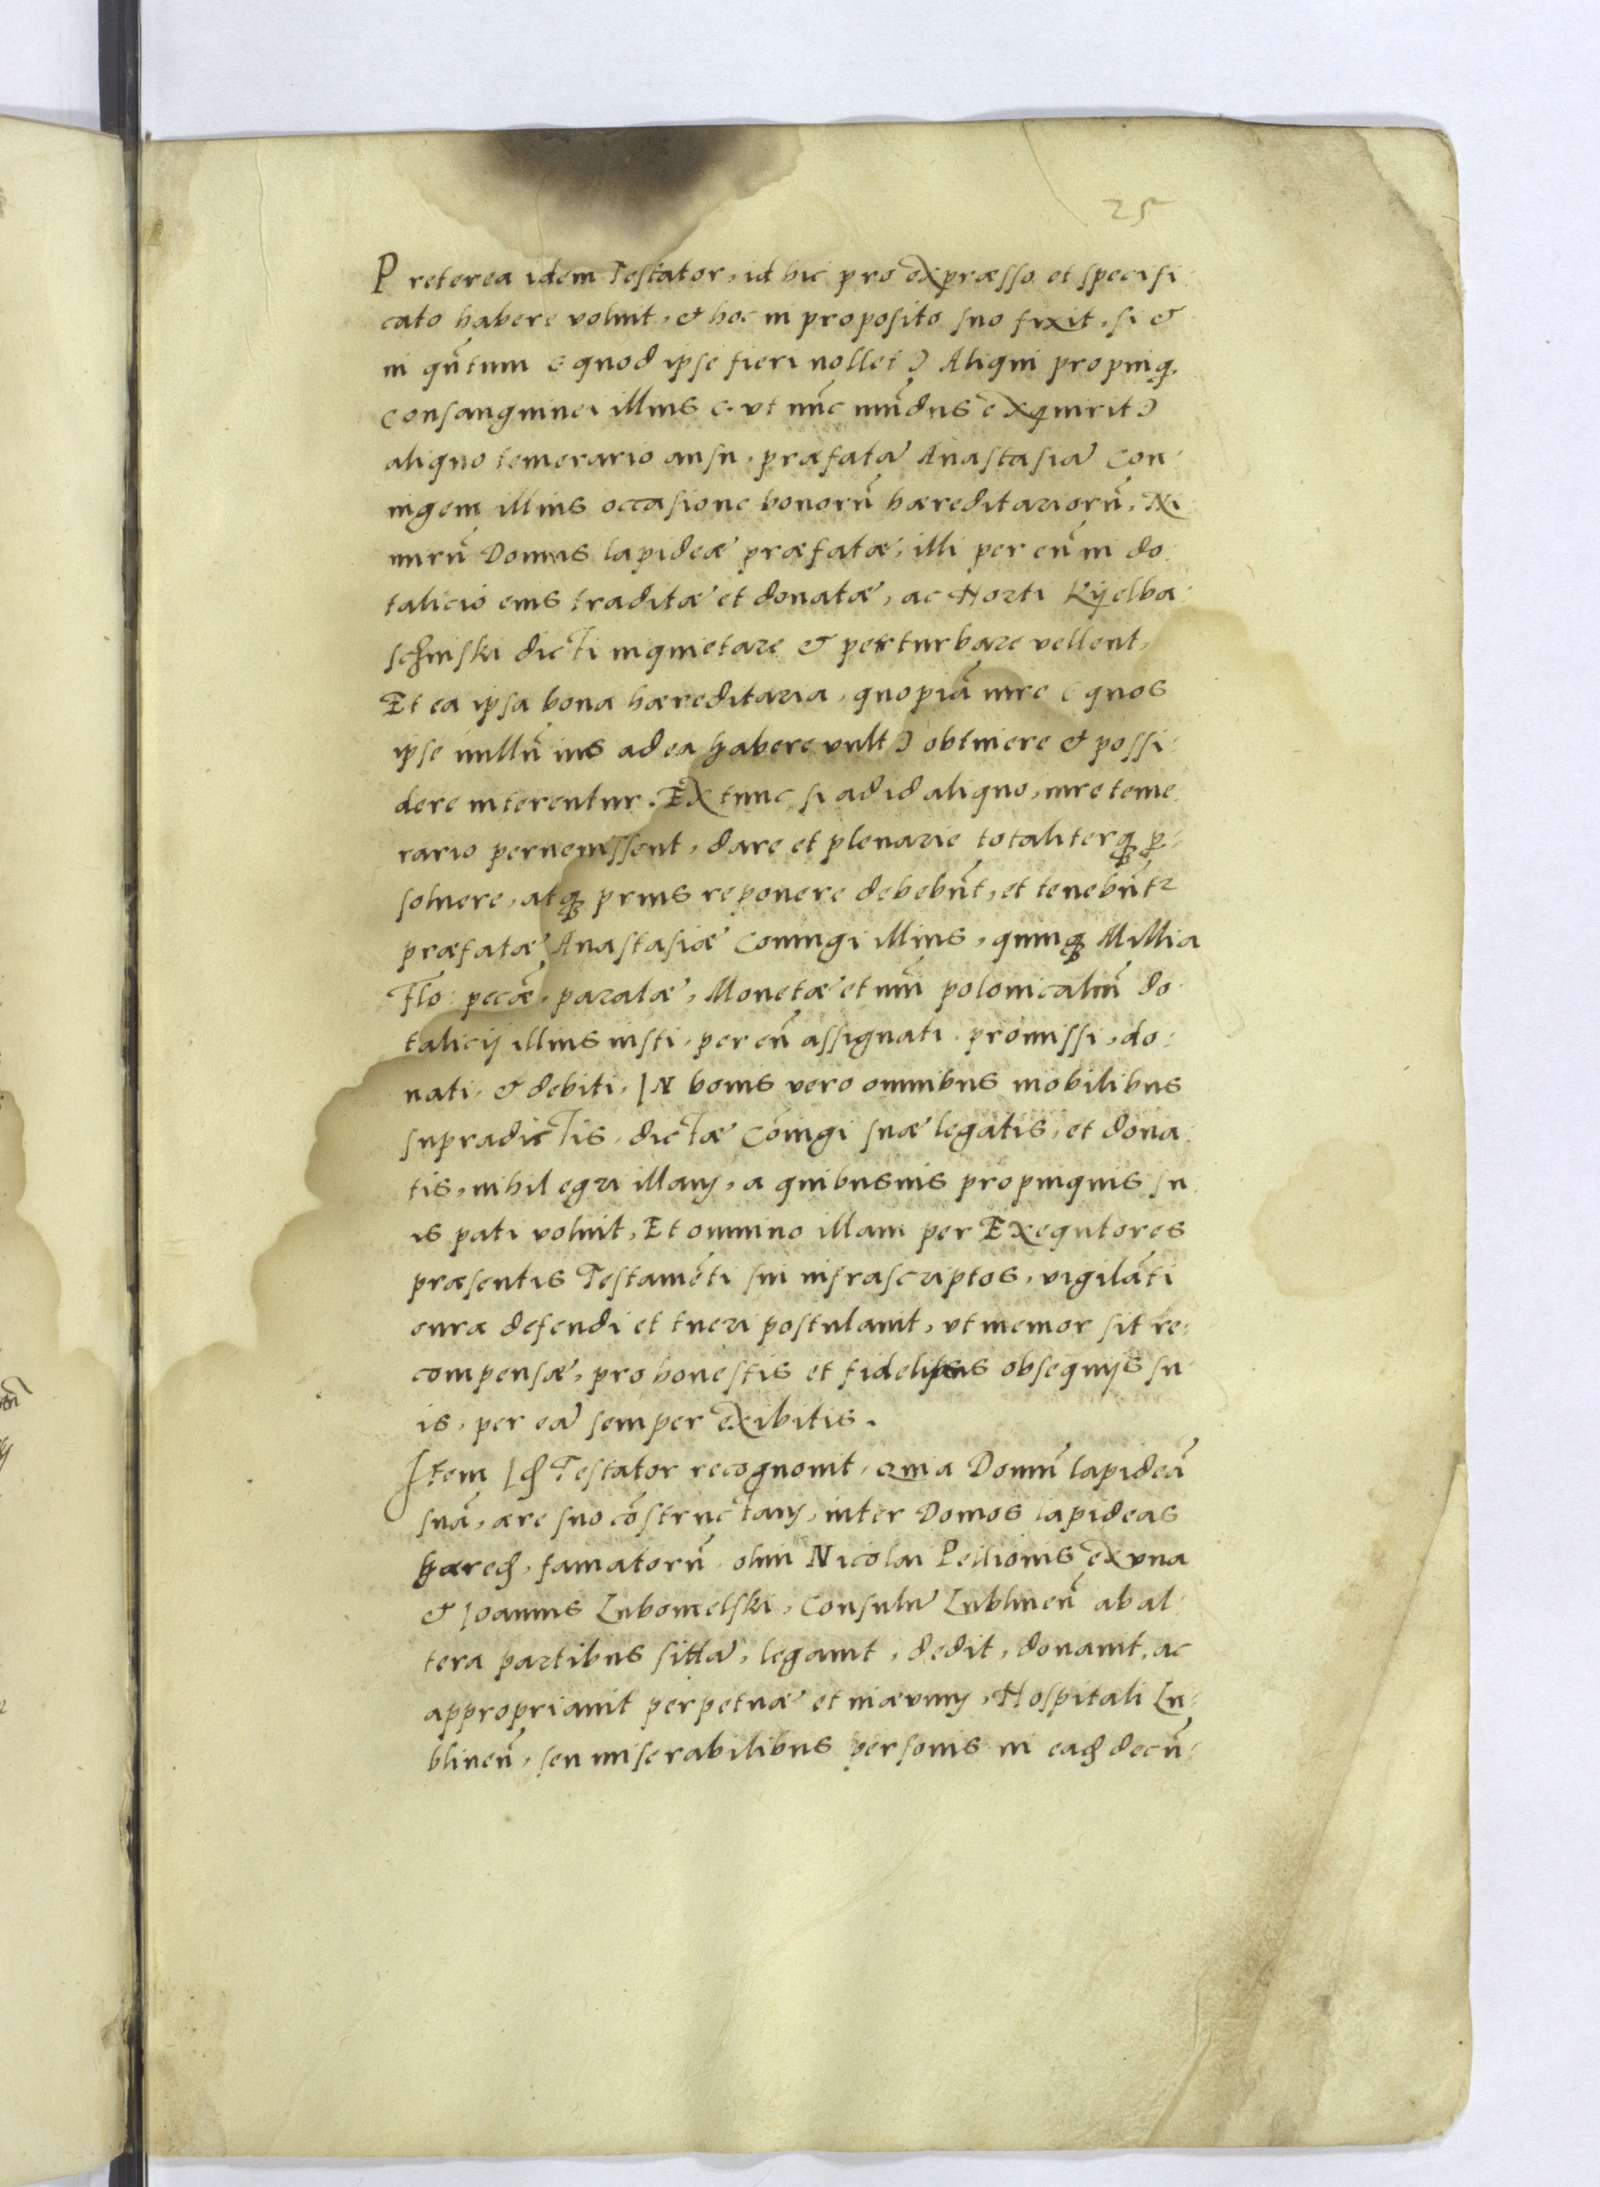 25
Preterea idem Testator, id hic pro expræsso et specifi
cato habere voluit, & hoc in proposito suo fixit, si &
in qñtum ( quod ipse fieri nollet ) Aliqui propinq.
consanguinei illius ( ut nũc mũdus exquirit )
aliquo temerario ausu, præfatã Anastasiã Con
iugem illius occasione bonorũ hæreditariorũ, Ni
mirũ Domus lapideæ præfatæ, illi per eũ in do
talicio eius traditæ et donatæ, ac Horti Kyelba
schinski dicti inquietare & perturbare vellent,
Et ea ipsa bona hæreditaria, quopiã iure ( quos
ipse nullũ ius ad ea habere vult ) obtinere & possi
dere niterentur. Ex tunc, si ad id aliquo, iure teme
rario peruenissent, dare et plenarie totaliterq; p
soluere, atq; prius reponere debebũt, et tenebũtr
præfatæ Anastasiæ Coniugi illius, quinq; Millia
Flo: pecæ, paratæ, Monetæ et nũi polonicaliũ do
talicij illius iusti, per eũ assignati, promissi, do:
nati, & debiti, IN bonis vero omnibus mobilibus
supradictis, dictæ Cõiugi suæ legatis, et dona
tis, nihil egri illam, a quibusuis propinquis su
is pati voluit, Et omnino illam per Exequtores
præsentis Testamẽti sui infrascriptos, vigilãti
cura defendi et tueri postulauit, ut memor sit re:
compensæ, pro honestis et fidelibus obsequijs su
is, per eã semper exibitis.
Item Idẽ Testator recognouit, quia Domũ lapideã
suã, ære suo cõstructam, inter Domos lapideas
hæred, famatorũ, olim Nicolai Pellionis ex una
& Joannis Lubomelski, Consulũ Lublineñ ab al
tera partibus sittã, legauit, dedit, donauit, ac
appropriauit perpetuæ et in æuum, Hospitali Lu:
blineñ, seu miserabilibus personis in eadẽ decũ: